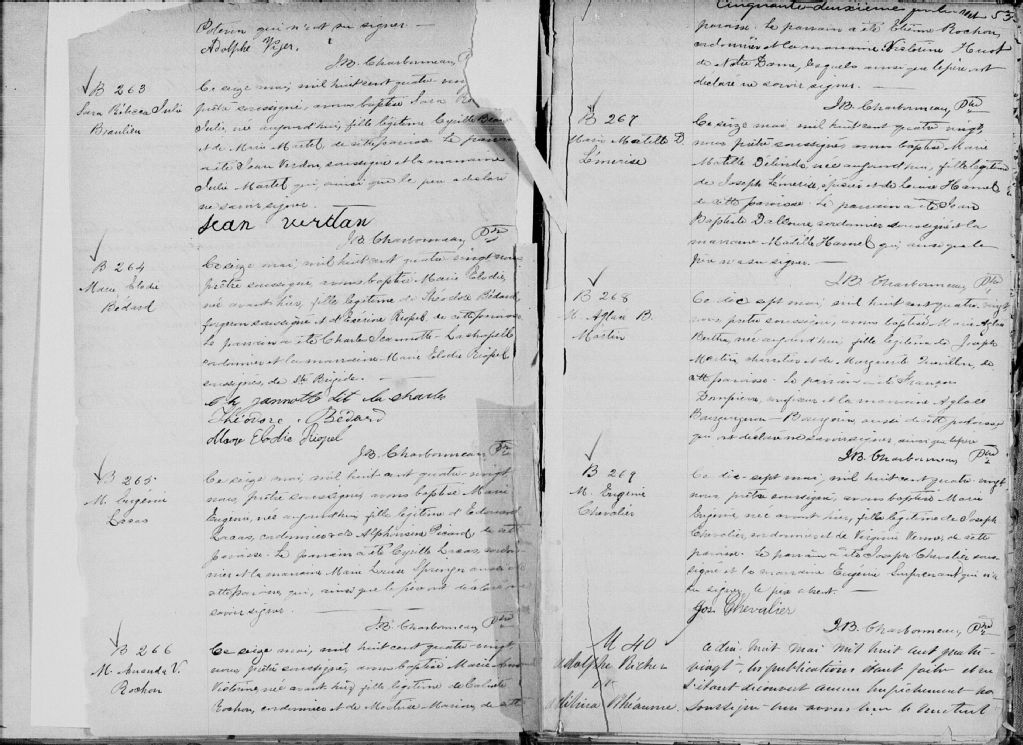 Poterin qui n'ont su signer —
Adolphe Viger.
J.B. Charbonneau,
B 263
Sara Rebecca Julie
Beaulieu
Ce seize mai, mil huit cent quatre
prêtre soussigné, avons baptisé Sara
Julie, née aujourd'hui, fille légitime Cyrille
et de Marie Martel de cette paroisse. Le parrain
a été Jean Verdon, soussigné et la marraine
Julie Martel qui, ainsi que le père a déclaré
ne savoir signer.
Jean verdan
J.B. Charbonneau, Ptre
B 264
Marie Elodie
Bédard
Ce seize mai, mil huit cent quatre vingt nous
prêtre soussigné, avons baptisé Marie Elodie,
née avant hier, fille légitime de Théodore Bédard
forgeron soussigné et d'Esérine Riopel de cette paroisse
Le parrain a été Charles Jeannotte Lachapelle
cordonnier et la marraine Marie Elodie Riopel
soussignés, de Ste Brigide. —
Ch jannotte dit la charles
Théodore. Bédard
Marie Elodie Riopel
J.B. Charbonneau, Ptre
B 265
M. Eugenie
Lasas
Ce seize mai, mil huit cent quatre-vingt
nous, prêtre soussigné, avons baptisé Marie
Eugenie, née aujourd'hui fille légitime d'Edouard
Lasas, cordonnier et de Alphonsine Picard de cette
paroisse. Le parrain a été Cyrille Lasas,
et la marraine Marie Louise Sprenger aussi de
cette paroisse, qui, ainsi que le père ont déclaré ne
savoir signer. —
J.B. Charbonneau, Ptre
B 266
M. Amanda V.
Rochon
Ce seize mai, mil huit cent quatre-vingt
nous, prêtre soussigné, avons baptisé Marie
Victorine, née avant hier fille légitime de Calixte
Rochon, cordonnier et de Marion, de cette
Cinquante deuxième 53
paroisse. Le parrain a été Etienne Rochon,
cordonnier et la marraine Victorine Huot
de Notre Dame, lesquels ainsi que le père, ont
déclaré ne savoir signer.
J.B. Charbonneau, Ptre
B 267
Marie Matilde D.
Lémerise
Ce seize mai, mil huit cent quatre vingt,
nous prêtre soussigné, avons baptisé Marie
Matilde née aujourd'hui, fille légitime
de Joseph Lémerise, et de Louise Hamel
de cette paroisse. Le parrain a été Jean
Baptiste cordonnier soussigné et la
marraine Matilde Hamel qui ainsi que le
père n'a su signer. —
J.B. Charbonneau, Ptre
B 268
M. Aglae B.
Martin
Ce dix sept mai, mil huit cent quatre-vingt
nous prêtre soussigné, avons baptisé Marie Aglae
Bertha, née aujourd'hui, fille légitime de Joseph
Martin charretier et de Marguerite de
cette paroisse. Le parrain a été François
et la marraine Aglaé
Bourgoin, aussi de cette paroisse
qui ont déclaré ne savoir signer ainsi que le père
J.B. Charbonneau, Ptre
B 269
M. Eugénie
Chevalier
Ce dix sept mai, mil huit cent quatre-vingt
nous, prêtre soussigné, avons baptisé Marie
Eugénie née avant hier, fille légitime de Joseph
Chevalier, cordonnier, et de Virginie de cette
paroisse. Le parrain a été Joseph Chevalier sous-
signé et la marraine Eugénie Surprenant qui n'a
su signer, le père absent. —
Jos. Chevalier
J.B. Charbonneau, Ptre
M 40
Adolphe Richer
&
Rhéaume.
Ce dix huit mai mil huit cent quatre-
vingt — les publications étant faites et ne
s'étant découvert aucun empêchement nous
soussigné avons